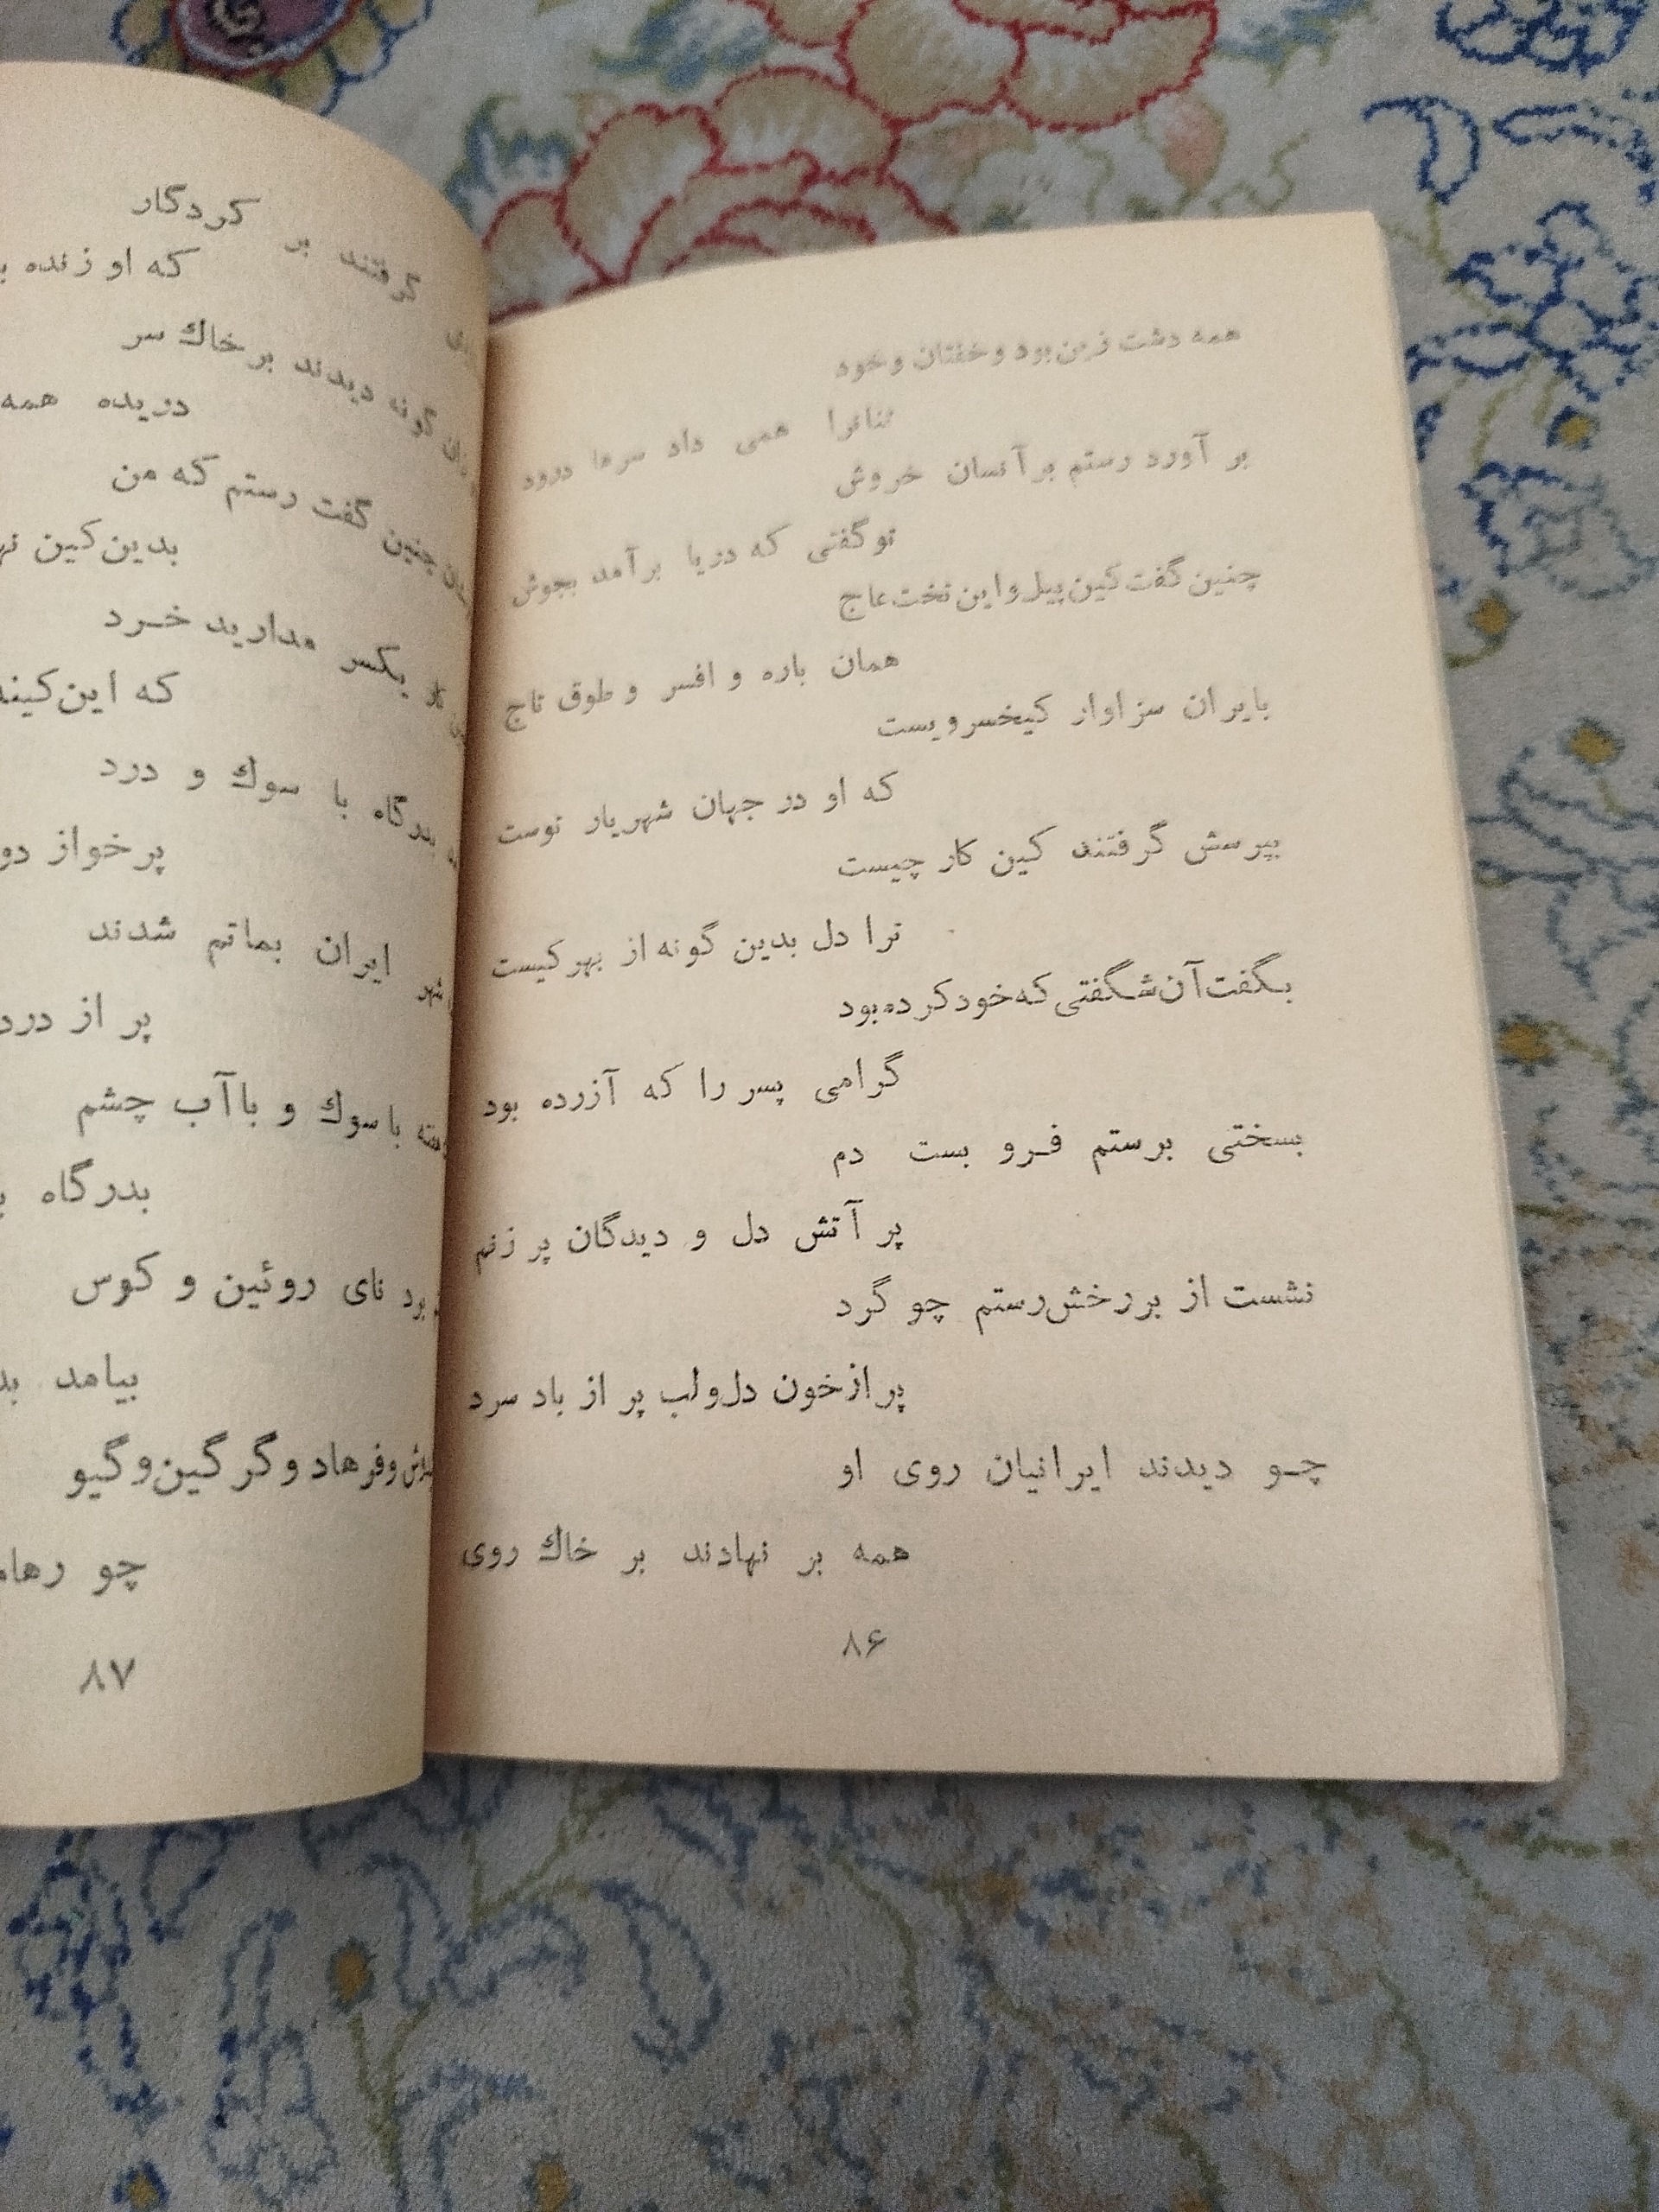 همه دشت فرین بود و خفتان و خود
همی داد سرها درود
بر آورد رستم بر آنسان خروش
تو گفتی که دریا بر آمد بجوش
چنین گفت کین پیل و این تخت عاج
همان باره و افسر و طوق تاج
بایران سزاوار کیخسرویست
که او در جهان شهریار نوست
بپرسش گرفتند کین کار چیست
ترا دل بدین گونه از بهر کیست
بگفت آن شگفتی که خود کرده بود
گرامی پسر را که آزرده بود
بسختی برستم فرو بست دم
پر آتش دل و دیدگان پر زنم
نشست از بر رخش رستم چو گرد
پر از خون دل و لب پر از باد سرد
چو دیدند ایرانیان روی او
همه بر نهادند بر خاك روی
۸۶
گرفتند بر کردگار
که او زنده
گونه دیدند بر خاك سر
دریده همه
چنین گفت رستم که من
بدین کین
یکسر مدارید خرد
که این
بدرگاه با سوك و درد
پر خواز
شهر ایران بماتم شدند
پر از درد
با سوك و با آب چشم
بدرگاه
برد نای روئین و کوس
بیامد
و فرهاد و گرگین و گیو
چو
۸۷